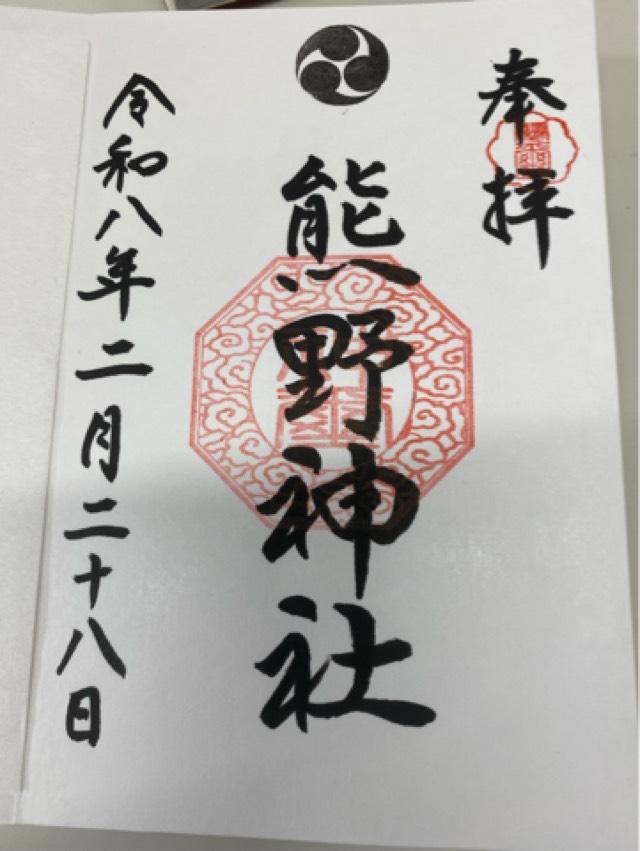 奉拝
熊野神社
令和八年二月二十八日